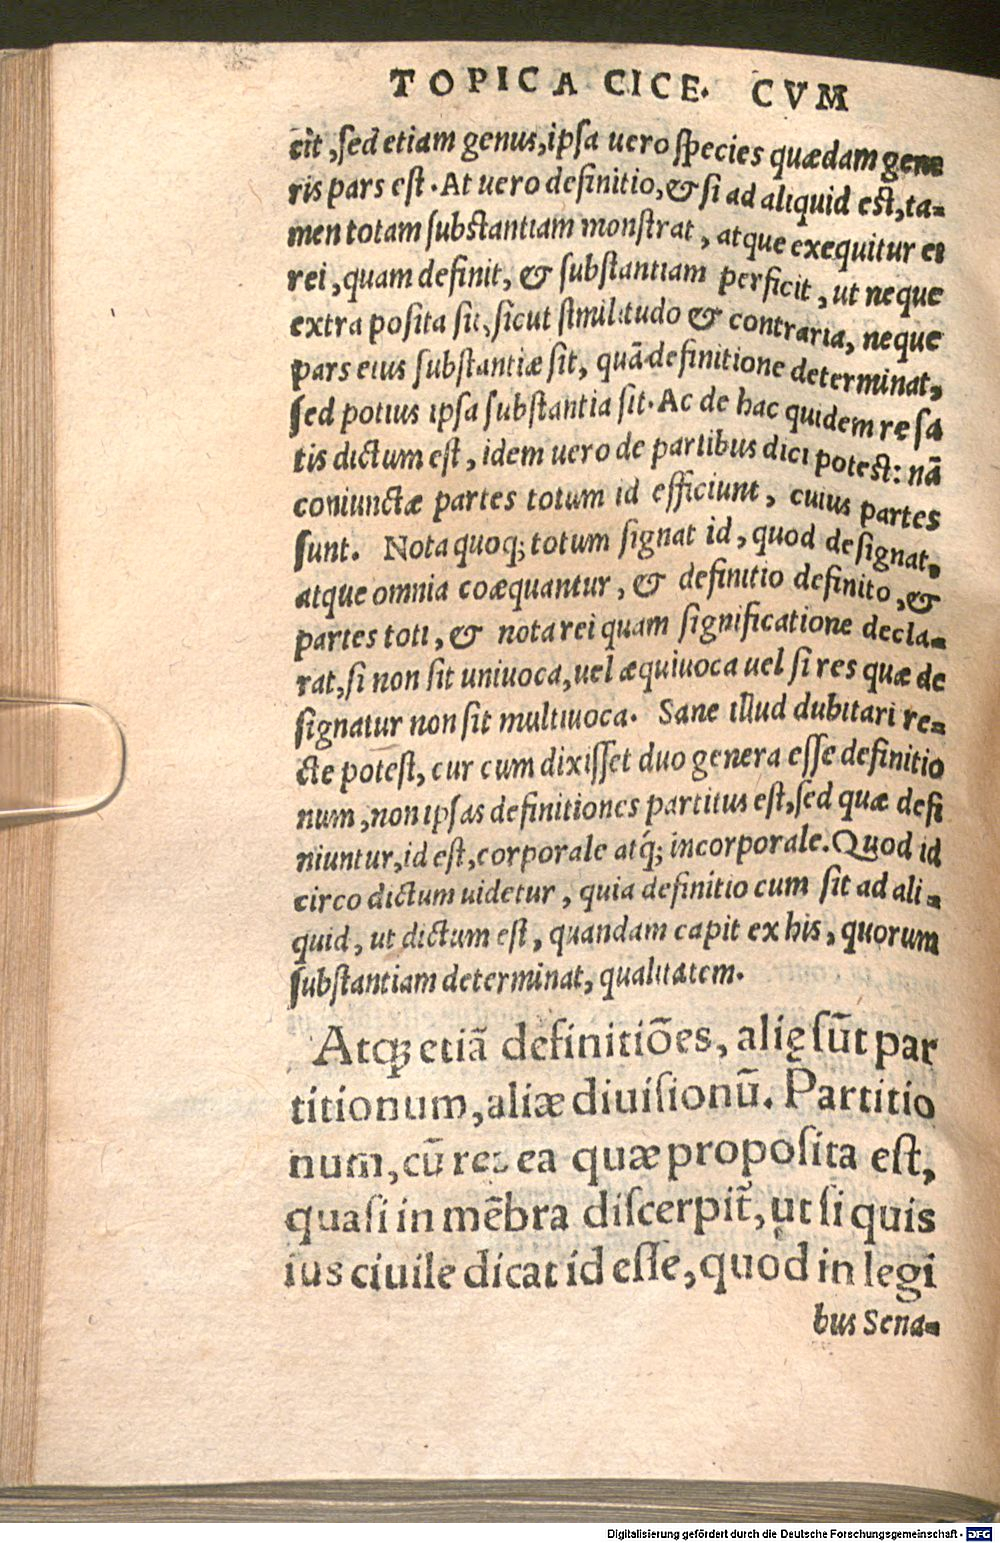 TOPICA CICE. CVM
cit, ſed etiam genus, ipſa uero ſpecies quædam gene
ris pars eſt. At uero definitio, & ſi ad aliquid eſt, ta-
men totam ſubſtantiam monſtrat, atque exequitur ei
rei, quam definit, & ſubſtantiam perficit, ut neque
extra poſita ſit, ſicut ſimilitudo & contraria, neque
pars eius ſubſtantiæ ſit, quā definitione determinat,
ſed potius ipſa ſubſtantia ſit. Ac de hac quidem re ſa
tis dictum eſt, idem uero de partibus dici poteſt: nā
coniunctæ partes totum id efficiunt, cuius partes
ſunt. Nota quoq; totum ſignat id, quod deſignat,
atque omnia coæquantur, & definitio definito, &
partes toti, & nota rei quam ſignificatione decla-
rat, ſi non ſit uniuoca, uel æquiuoca uel ſi res quæ de
ſignatur non ſit multiuoca. Sane illud dubitari re-
cte poteſt, cur cum dixiſſet duo genera eſſe definitio
num, non ipſas definitiones partitus eſt, ſed quæ defi
niuntur, id eſt, corporale atq́; incorporale. Quod id
circo dictum uidetur, quia definitio cum ſit ad ali-
quid, ut dictum eſt, quandam capit ex his, quorum
ſubſtantiam determinat, qualitatem.
Atq; etiā definitiōes, alię ſūt par
titionum, aliæ diuiſionū. Partitio
num, cū res ea quæ propoſita eſt,
quaſi in mēbra diſcerpit̃, ut ſi quis
ius ciuile dicat id eſſe, quod in legi
bus Sena-
Digitalisierung gefördert durch die Deutsche Forschungsgemeinschaft - DFG